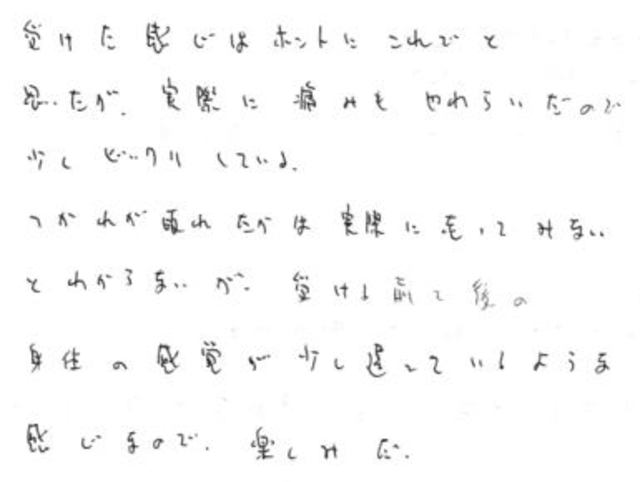 受けた感じはホントにこれでと
思ったが、実際に痛みもやわらいだので
少しビックリしている。
つかれが取れたかは実際に走ってみない
とわからないが、受ける前と後の
身体の感覚が少し違っているような
感じなので、楽しみだ。